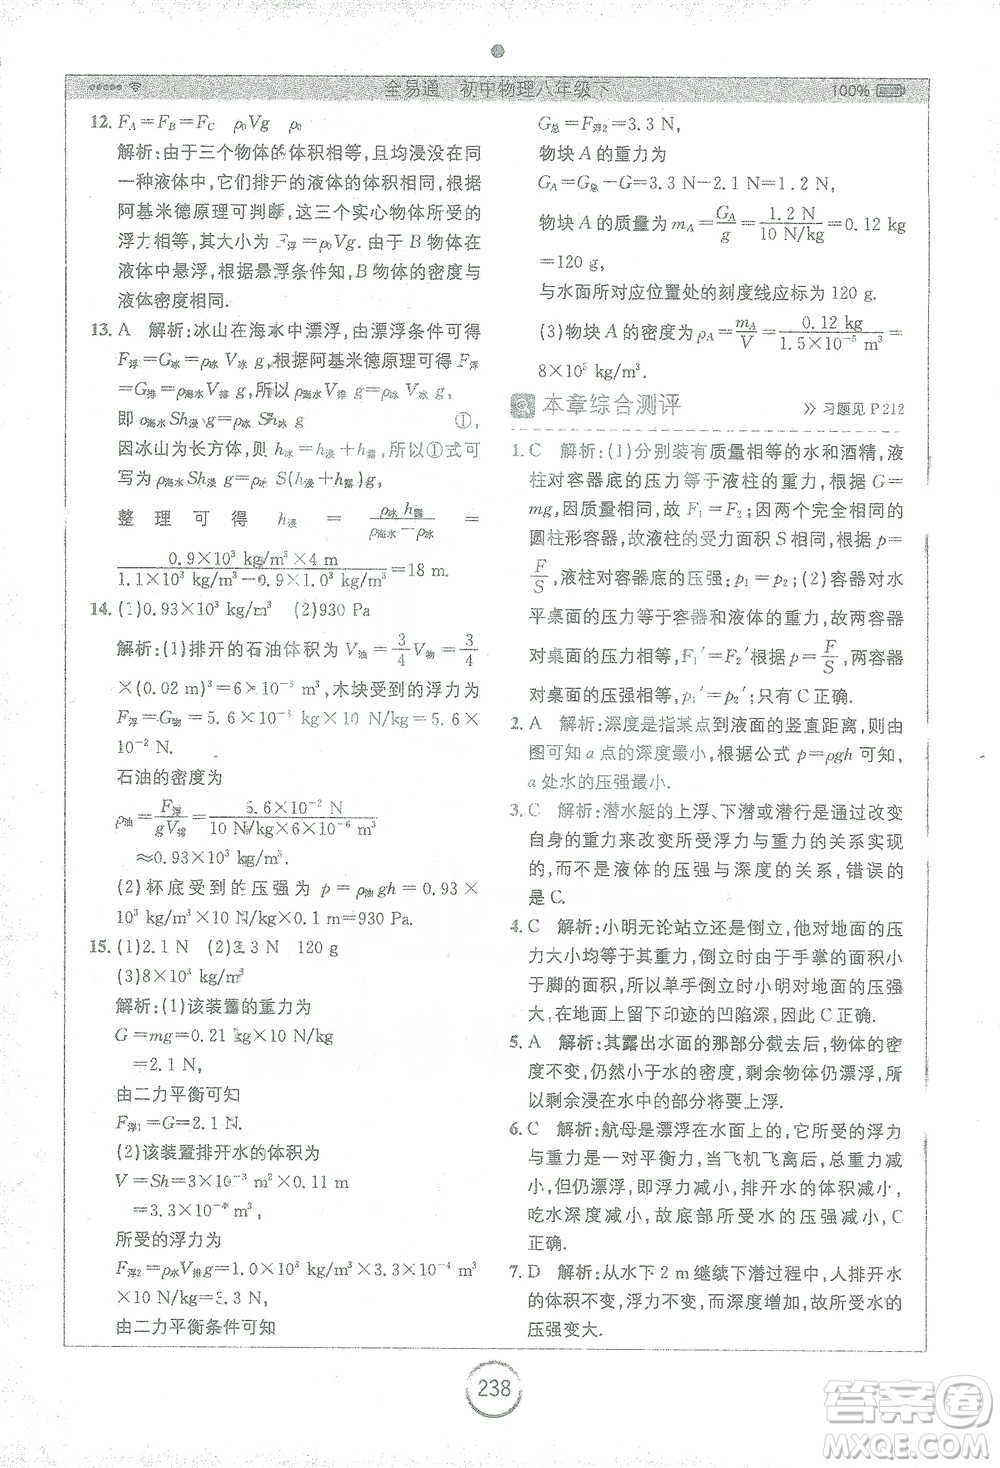 全易通 初中物理八年级下
100%
12. F_A=F_B=F_C ρ₀Vg
解析:由于三个物体的体积相等,且均浸没在同
一种液体中,它们排开的液体的体积相同,根据
阿基米德原理可判断,这三个实心物体所受的
浮力相等,其大小为 F浮=ρ₀Vg. 由于 B 物体在
液体中悬浮,根据悬浮条件知,B 物体的密度与
液体密度相同.
13. A 解析:冰山在海水中漂浮,由漂浮条件可得
F浮=G冰=ρ冰 V冰 g,根据阿基米德原理可得 F浮
=G排=ρ海水V排 g,所以 ρ海水V排 g=ρ冰V冰 g,
即 ρ海水Sh浸 g=ρ冰 Sh冰 g ①,
因冰山为长方体,则 h冰=h浸+h露,所以①式可
写为 ρ海水Sh浸 g=ρ冰 S(h浸+h露)g,
整理可得 h浸 = ρ冰 h露/(ρ海水-ρ冰) =
(0.9×10³ kg/m³×4 m)/(1.1×10³ kg/m³-0.9×1.0³ kg/m³)=18 m.
14. (1)0.93×10³ kg/m³ (2)930 Pa
解析:(1)排开的石油体积为 V油=3/4V物=3/4
×(0.02 m)³=6×10⁻⁶ m³,木块受到的浮力为
F浮=G物=5.6×10⁻³ kg×10 N/kg=5.6×
10⁻² N.
石油的密度为
ρ油=F浮/(gV排)=(5.6×10⁻² N)/(10 N/kg×6×10⁻⁶ m³)
≈0.93×10³ kg/m³.
(2)杯底受到的压强为 p=ρ油gh=0.93×
10³ kg/m³×10 N/kg×0.1 m=930 Pa.
15. (1)2.1 N (2)3.3 N 120 g
(3)8×10³ kg/m³
解析:(1)该装置的重力为
G=mg=0.21 kg×10 N/kg
=2.1 N,
由二力平衡可知
F浮1=G=2.1 N.
(2)该装置排开水的体积为
V=Sh=3×10⁻³ m²×0.11 m
=3.3×10⁻⁴ m³,
所受的浮力为
F浮2=ρ水V排g=1.0×10³ kg/m³×3.3×10⁻⁴ m³
×10 N/kg=3.3 N,
由二力平衡条件可知
G总=F浮2=3.3 N,
物块 A 的重力为
G_A=G总-G=3.3 N-2.1 N=1.2 N,
物块 A 的质量为 m_A=G_A/g=1.2 N/10 N/kg=0.12 kg
=120 g,
与水面所对应位置处的刻度线应标为 120 g.
(3)物块 A 的密度为 ρ_A=m_A/V=0.12 kg/1.5×10⁻⁵ m³=
8×10³ kg/m³.
本章综合测评 >> 习题见 P212
1. C 解析:(1)分别装有质量相等的水和酒精,液
柱对容器底的压力等于液柱的重力,根据 G=
mg,因质量相等,故 F₁=F₂;因两个完全相同的
圆柱形容器,故液柱的受力面积 S 相同,根据 p=
F/S,液柱对容器底的压强:p₁=p₂;(2)容器对水
平桌面的压力等于容器和液体的重力,故两容器
对桌面的压力相等,F₁′=F₂′根据 p=F/S,两容器
对桌面的压强相等,p₁′=p₂′;只有 C 正确.
2. A 解析:深度是指某点到液面的竖直距离,则由
图可知 a 点的深度最小,根据公式 p=ρgh 可知,
a 处水的压强最小.
3. C 解析:潜水艇的上浮、下潜或潜行是通过改变
自身的重力来改变所受浮力与重力的关系实现
的,而不是液体的压强与深度的关系,错误的
是 C.
4. C 解析:小明无论站立还是倒立,他对地面的压
力大小均等于其重力,倒立时,由于手掌的面积小
于脚的面积,所以单手倒立时小明对地面的压强
大,在地面上留下印迹的凹陷深,因此 C 正确.
5. A 解析:其露出水面的那部分截去后,物体的密
度不变,仍然小于水的密度,剩余物体仍漂浮,所
以剩余浸在水中的部分将要上浮.
6. C 解析:航母是漂浮在水面上的,它所受的浮力
与重力是一对平衡力,当飞机飞离后,总重力减
小,但仍漂浮,所以浮力减小,排开水的体积减小,
吃水深度减小,故底部所受水的压强减小,C
正确.
7. D 解析:从水下 2 m 继续下潜过程中,人排开水
的体积不变,浮力不变,而深度增加,故所受水的
压强变大.
238
答案圈
MXQE.COM